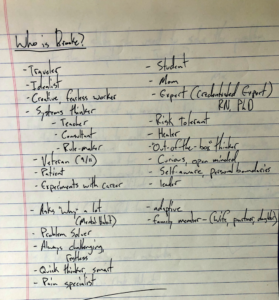 Who is Brooke?
- Traveler
- Idealist
- Creative fearless worker
- Systems thinker
- Teacher
- Consultant
- Rule-maker
- Veteran (9/11)
- Patient
- Experiments with career
- Asks "why" a lot
- Problem Solver
- Always challenging
- Quick thinker, smart
- Pain specialist
- Student
- Mom
- Expert (credentialed Expert)
RN, PhD
- Risk tolerant
- Healer
- "Out-of-the-box" thinker
- Curious, open minded
- Self-aware, personal boundaries
- leader
- adaptive
- Family member - (wife, partner, daughter)